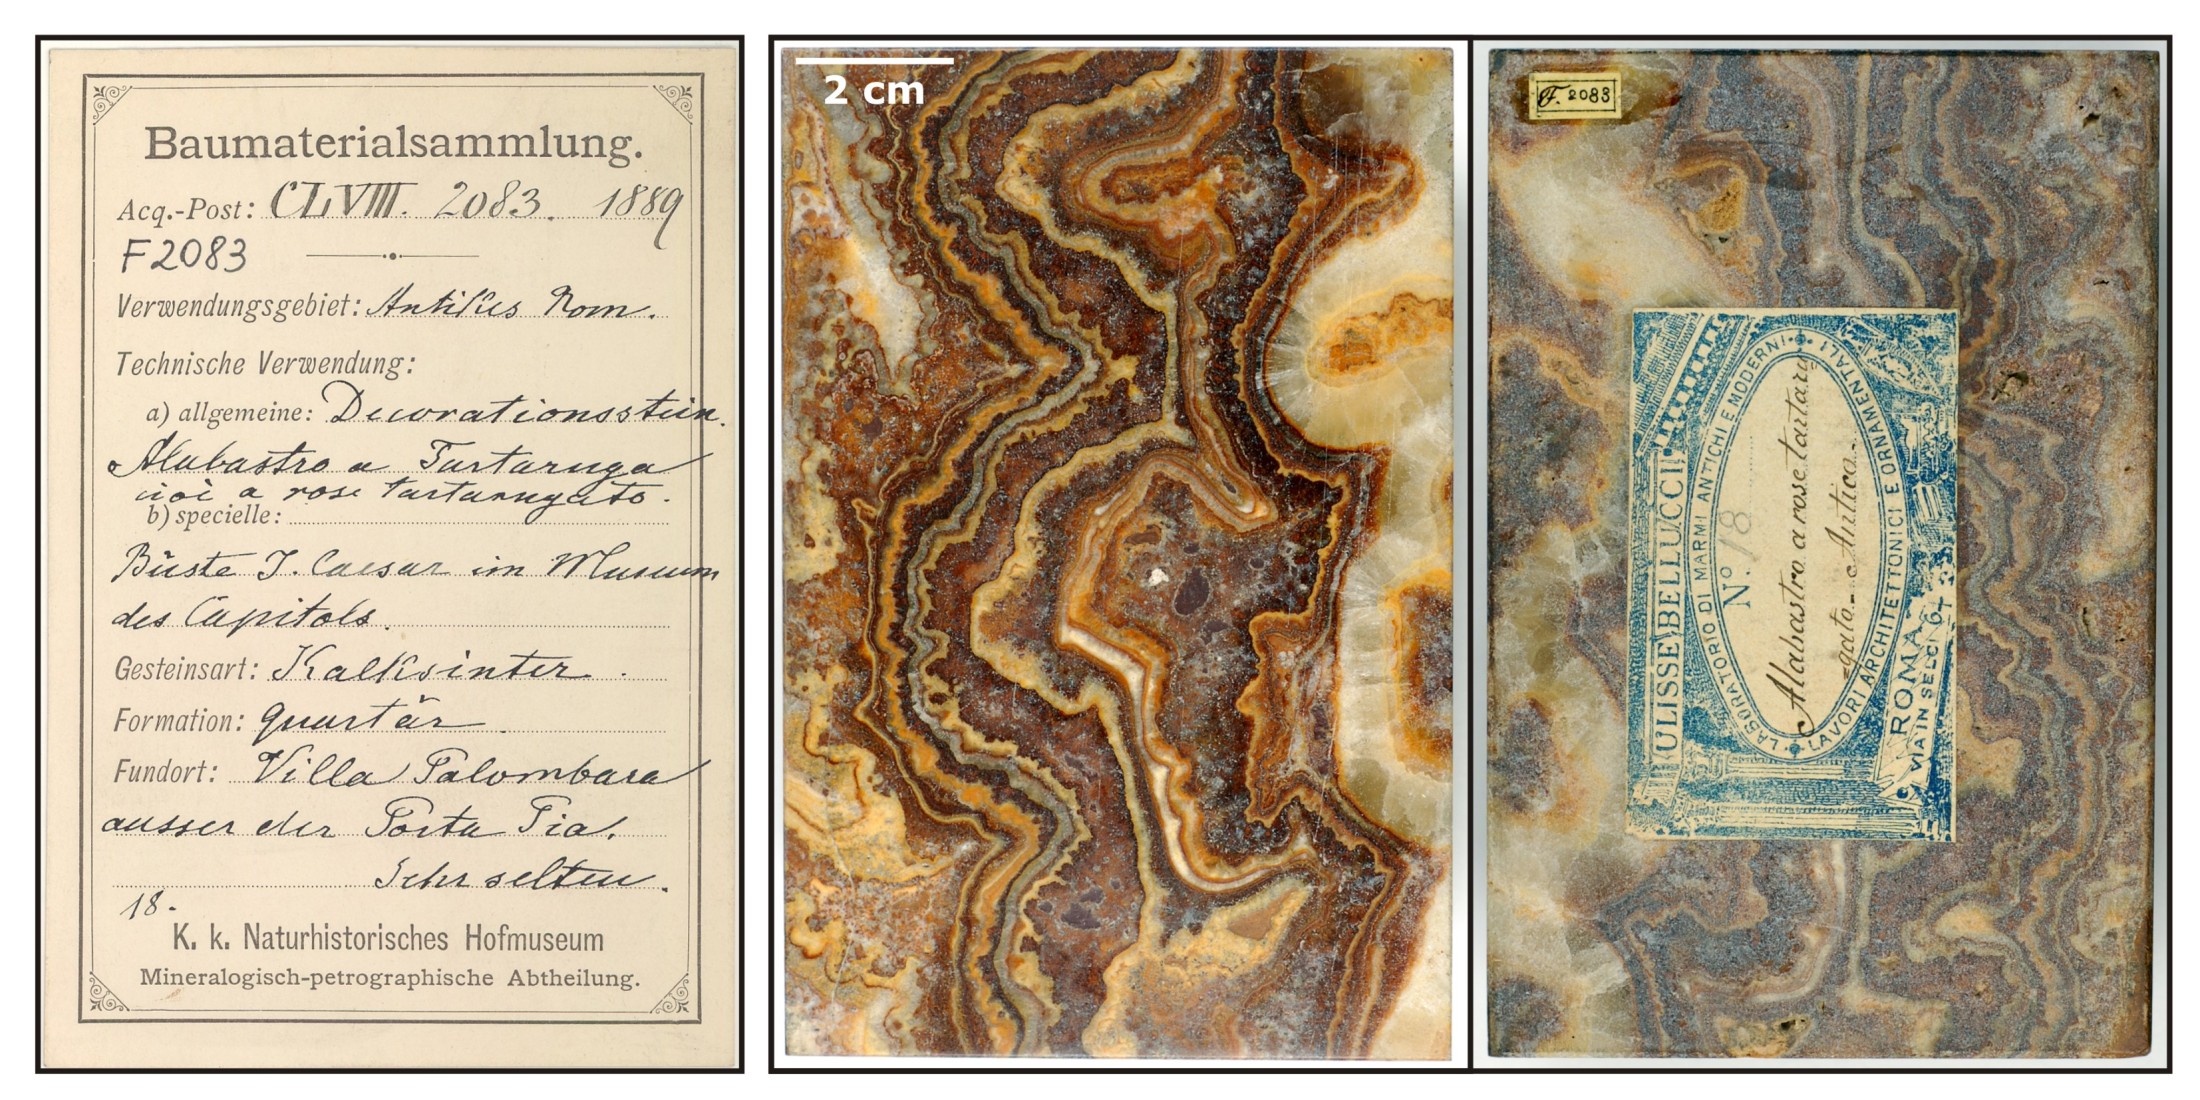 Baumaterialsammlung.
Acq.-Post: CLVIII. 2083. 1889
F2083
Verwendungsgebiet: Antikes Rom.
Technische Verwendung:
a) allgemeine: Decorationsstein.
Alabastro a Tartaruga
cioè a rose tartarugato.
b) specielle:
Büste J. Caesar im Museum
des Capitols.
Gesteinsart: Kalksinter.
Formation: quartär.
Fundort: Villa Palombara
ausser der Porta Pia.
Sehr selten.
18.
K. k. Naturhistorisches Hofmuseum
Mineralogisch-petrographische Abtheilung.
2 cm
F. 2083
ULISSE BELLUCCI
LABORATORIO DI MARMI ANTICHI E MODERNI
No. 18
Alabastro a rose tartaru
=gato - Antico -
LAVORI ARCHITETTONICI E ORNAMENTALI
ROMA
VIA IN SELCI